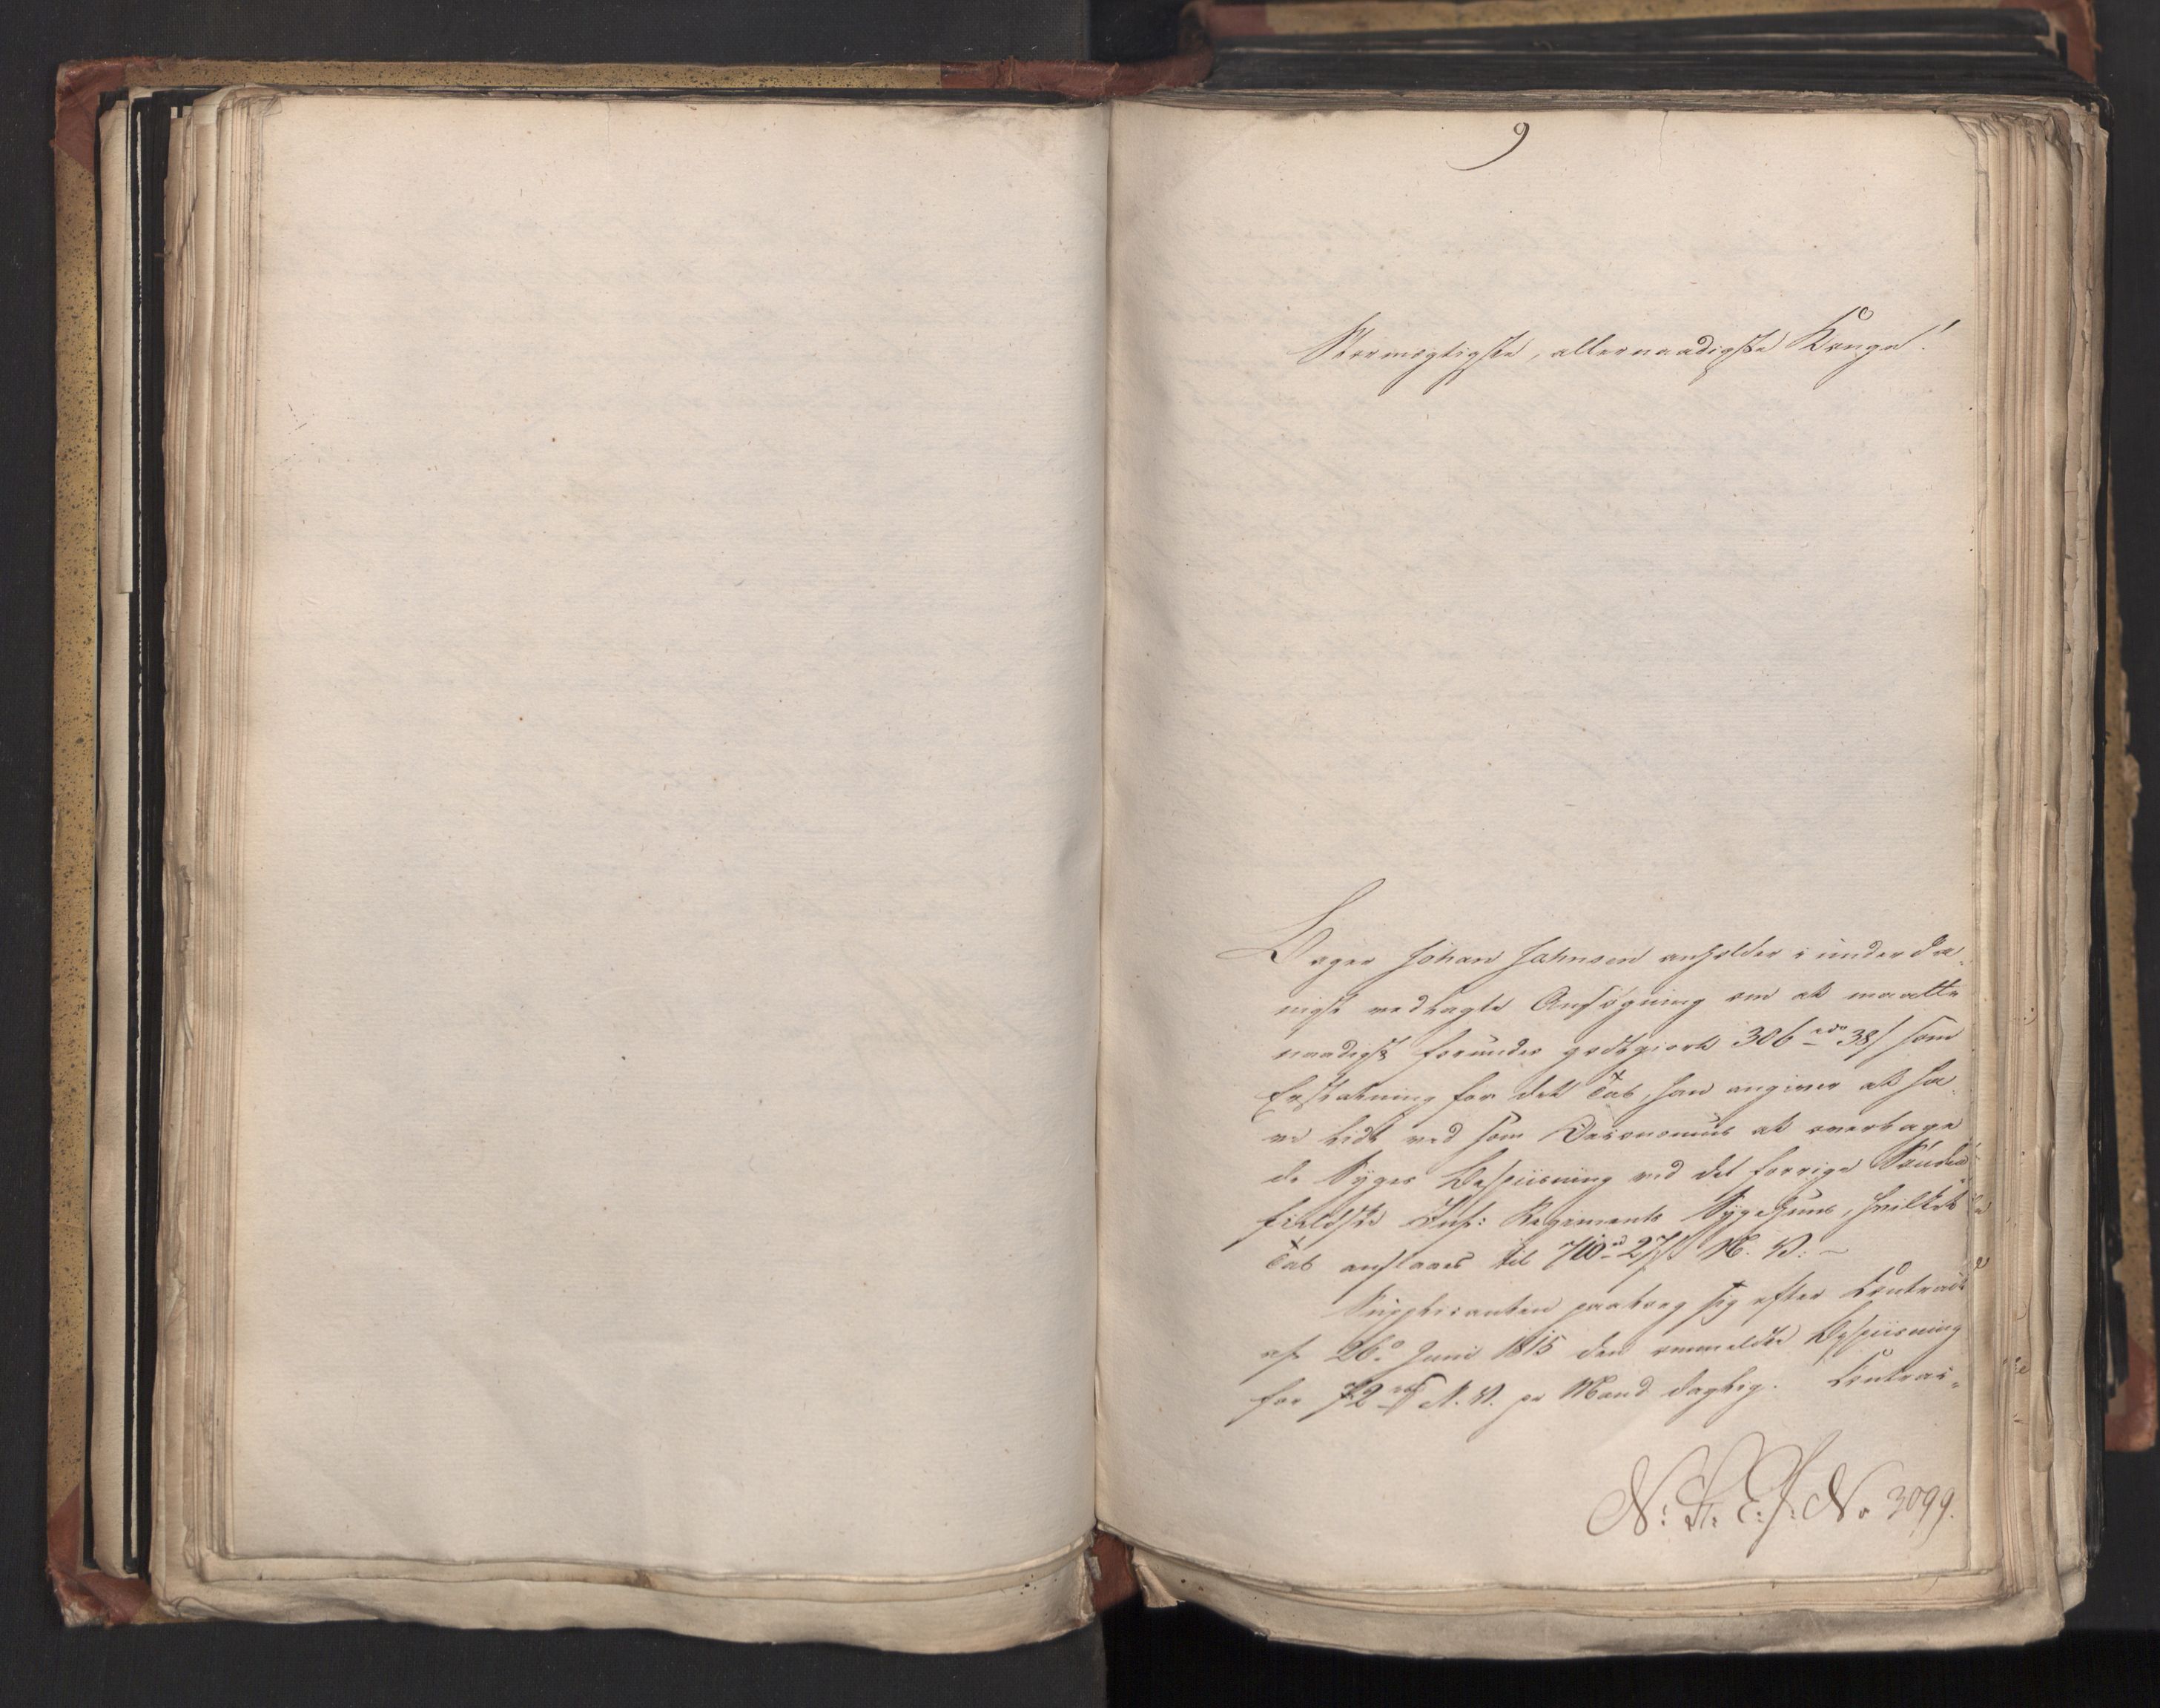 9
Stormægtigste, allernaadigste Konge!
Bager Johan Johnsen anholder i underda„
nigst vedlagte Ansøgning om at maatte
naadigst forundes godtgiort 306 38 s som
Erstatning for det Tab, han angiver at ha„
ve lidt ved som Oeconomus at overtage
de Syges Bespiisning ved det forrige Sønden„
fieldske Inf: Regiments Sygehuus, hvilket
Tab anslaaes til 710 27 s N. V:
Supplicanten paatog sig efter Contract
af 26de Juni 1815 den ommeldte Bespiisning
for 72 N. V. pr Mand daglig. Contrac„
No 3099.